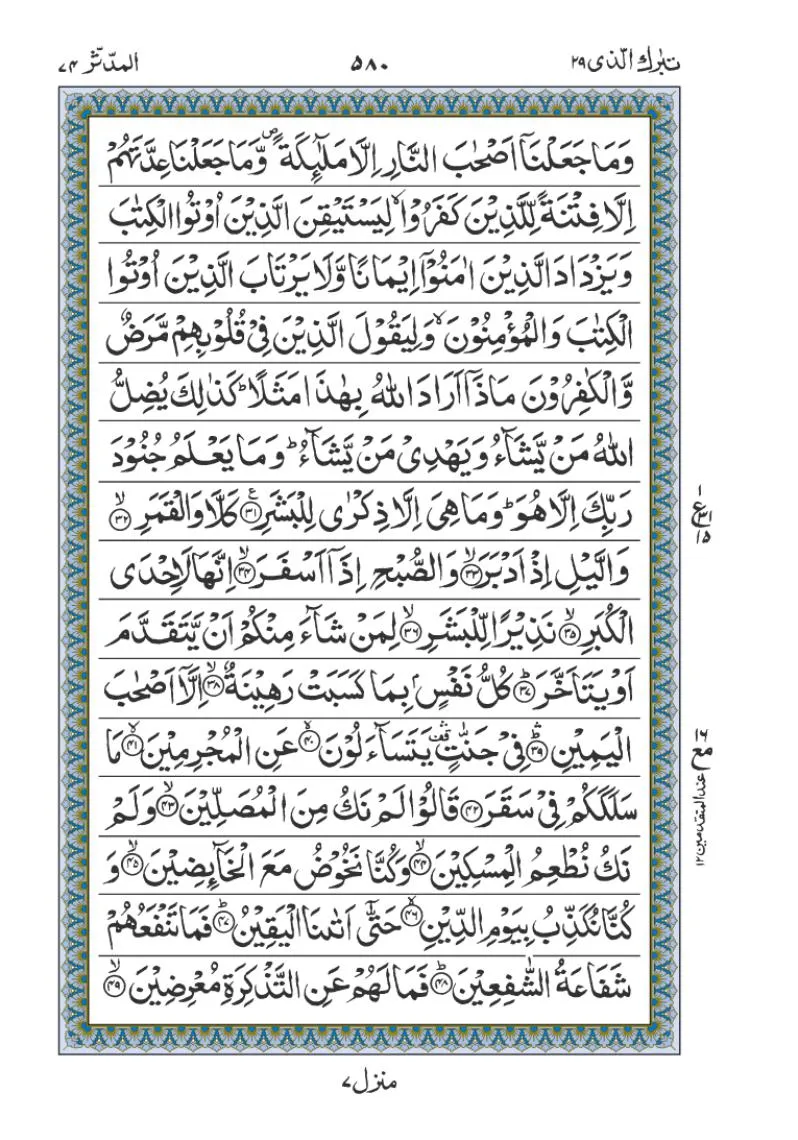 تبٰرك الّذى ٢٩
٥٨٠
المدّثّر ٧٤
وَمَا جَعَلْنَآ اَصْحٰبَ النَّارِ اِلَّا مَلٰٓئِكَةً ۪ وَّمَا جَعَلْنَا عِدَّتَهُمْ
اِلَّا فِتْنَةً لِّلَّذِيْنَ كَفَرُوْا ۙ لِيَسْتَيْقِنَ الَّذِيْنَ اُوْتُوا الْكِتٰبَ
وَيَزْدَادَ الَّذِيْنَ اٰمَنُوْٓا اِيْمَانًا وَّلَا يَرْتَابَ الَّذِيْنَ اُوْتُوا
الْكِتٰبَ وَالْمُؤْمِنُوْنَ ۙ وَلِيَقُوْلَ الَّذِيْنَ فِيْ قُلُوْبِهِمْ مَّرَضٌ
وَّالْكٰفِرُوْنَ مَاذَآ اَرَادَ اللّٰهُ بِهٰذَا مَثَلًا ؕ كَذٰلِكَ يُضِلُّ
اللّٰهُ مَنْ يَّشَآءُ وَيَهْدِيْ مَنْ يَّشَآءُ ؕ وَمَا يَعْلَمُ جُنُوْدَ
رَبِّكَ اِلَّا هُوَ ؕ وَمَا هِيَ اِلَّا ذِكْرٰى لِلْبَشَرِ ﴿٣١﴾ كَلَّا وَالْقَمَرِ ۙ﴿٣٢﴾
وَالَّيْلِ اِذْ اَدْبَرَ ۙ﴿٣٣﴾ وَالصُّبْحِ اِذَآ اَسْفَرَ ۙ﴿٣٤﴾ اِنَّهَا لَاِحْدَى
الْكُبَرِ ۙ﴿٣٥﴾ نَذِيْرًا لِّلْبَشَرِ ۙ﴿٣٦﴾ لِمَنْ شَآءَ مِنْكُمْ اَنْ يَّتَقَدَّمَ
اَوْ يَتَاَخَّرَ ؕ﴿٣٧﴾ كُلُّ نَفْسٍۭ بِمَا كَسَبَتْ رَهِيْنَةٌ ۙ﴿٣٨﴾ اِلَّآ اَصْحٰبَ
الْيَمِيْنِ ؕۛ﴿٣٩﴾ فِيْ جَنّٰتٍ ۛ۫ يَتَسَآءَلُوْنَ ۙ﴿٤٠﴾ عَنِ الْمُجْرِمِيْنَ ۙ﴿٤١﴾ مَا
سَلَكَكُمْ فِيْ سَقَرَ ﴿٤٢﴾ قَالُوْا لَمْ نَكُ مِنَ الْمُصَلِّيْنَ ۙ﴿٤٣﴾ وَلَمْ
نَكُ نُطْعِمُ الْمِسْكِيْنَ ۙ﴿٤٤﴾ وَكُنَّا نَخُوْضُ مَعَ الْخَآئِضِيْنَ ۙ﴿٤٥﴾ وَ
كُنَّا نُكَذِّبُ بِيَوْمِ الدِّيْنِ ۙ﴿٤٦﴾ حَتّٰىٓ اَتٰىنَا الْيَقِيْنُ ؕ﴿٤٧﴾ فَمَا تَنْفَعُهُمْ
شَفَاعَةُ الشّٰفِعِيْنَ ؕ﴿٤٨﴾ فَمَا لَهُمْ عَنِ التَّذْكِرَةِ مُعْرِضِيْنَ ۙ﴿٤٩﴾
١
ع
٣١
١٥
١٦
مع
عند المتقدمين ١٢
منزل ٧